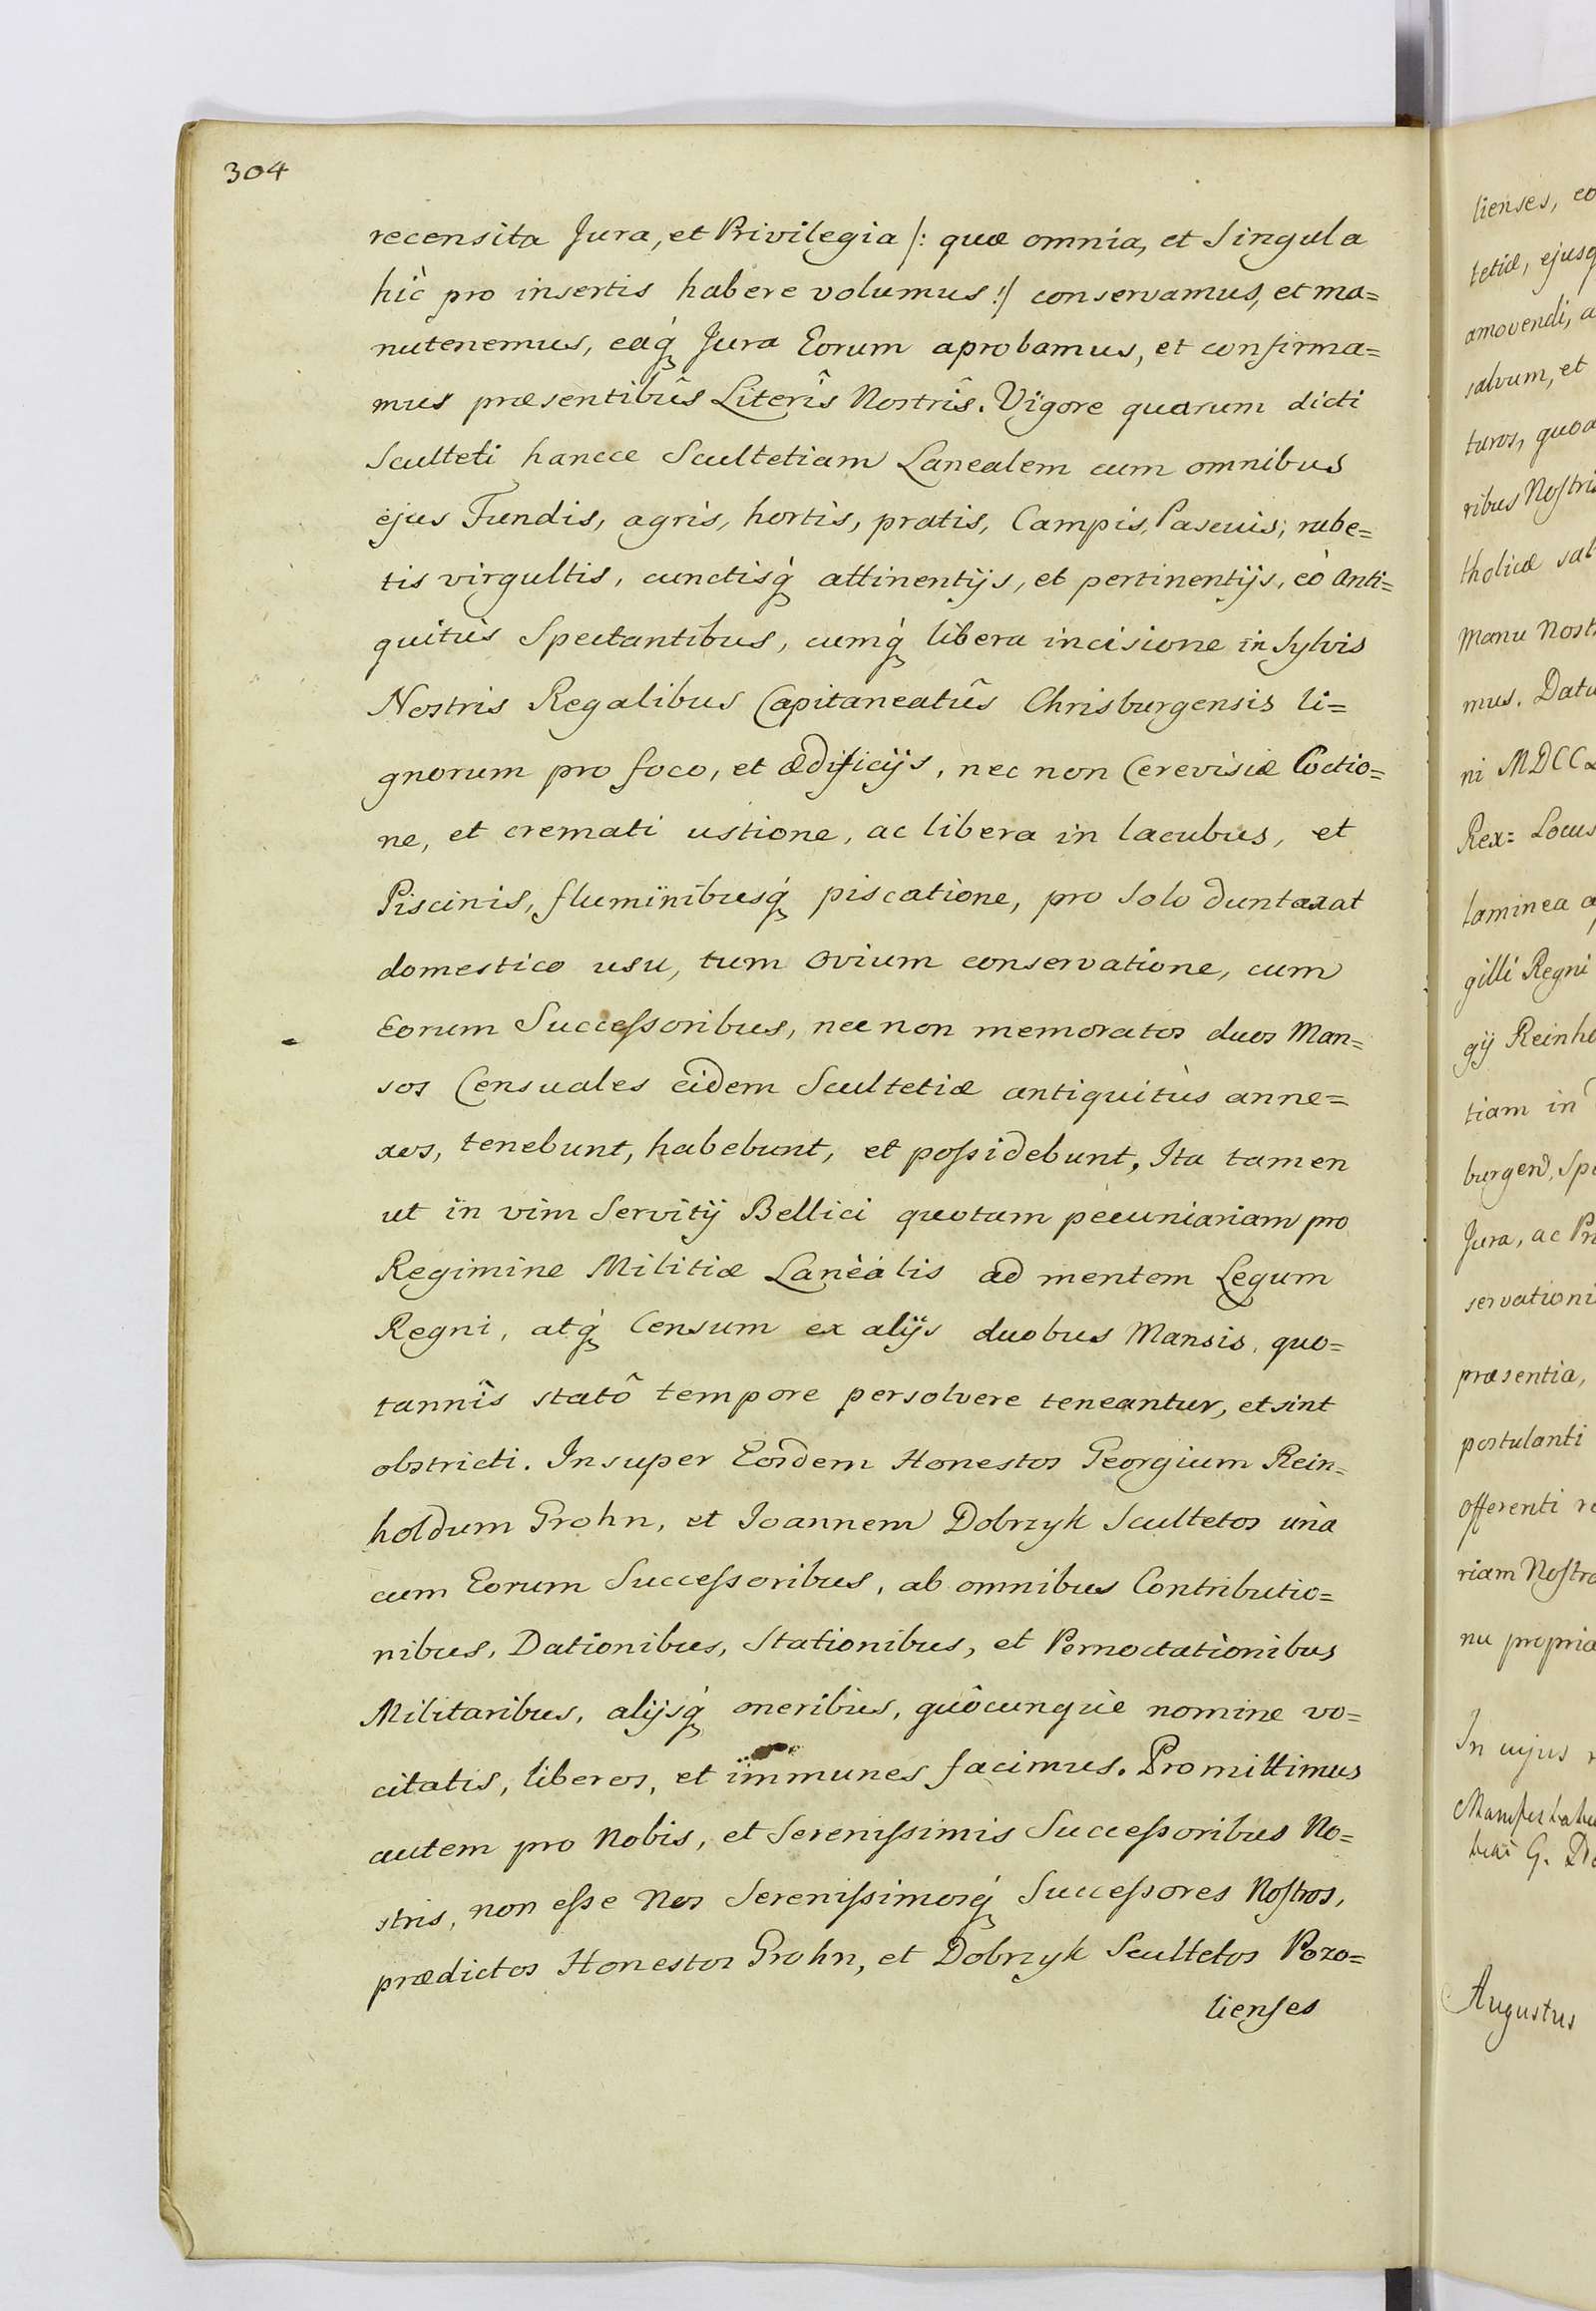 304
recensita Jura, et Privilegia /: quæ omnia, et Singula
hìc pro insertis habere volumus :/ conservamus, et ma=
nutenemus, eaq́ Jura Eorum aprobamus, et confirma=
mus præsentibûs Literîs Nostrîs. Vigore quarum dicti
Sculteti hancce Scultetiam Lanealem cum omnibus
ejus Fundis, agris, hortis, pratis, Campis, Pascuis, rube=
tis virgultis, cunctisq́ attinentijs, et pertinentijs, eò Anti=
quitùs Spectantibus, cumq́ libera incisione in Sylvis
Nostris Regalibus Capitaneatûs Chrisburgensis li=
gnorum pro foco, et ædificijs, nec non Cerevisiæ Coctio=
ne, et cremati ustione, ac libera in lacubus, et
Piscinis, fluminibusq́ piscatione, pro solo duntaxat
domestico usu, tum ovium conservatione, cum
Eorum Successoribus, nec non memoratos duos Man=
sos Censuales eidem Scultetiæ antiquitùs anne=
xos, tenebunt, habebunt, et possidebunt, Ita tamen
ut in vim Servitij Bellici quotam pecuniariam pro
Regimine Militiæ Lanealis ad mentem Legum
Regni, atq́ Censum ex alijs duobus Mansis, quo=
tannìs statô tempore persolvere teneantur, et sint
obstricti. Insuper Eosdem Honestos Georgium Rein=
holdum Grohn, et Joannem Dobrzyk Scultetos unà
cum Eorum Successoribus, ab omnibus Contributio=
nibus, Dationibus, Stationibus, et Pernoctationibus
Militaribus, alijsq́ oneribus, quôcunquè nomine vo=
citatis, liberos, et immunes facimus. Promittimus
autem pro Nobis, et Serenissimis Successoribus No=
stris, non esse Nos Serenissimosq́ Successores Nostros,
prædictos Honestos Grohn, et Dobrzyk Scultetos Pozo=
lienses
lienses, eo
tetiæ, ejusq
amovendi, a
salvum, et
turos, quoa
ribus Nostris
tholicæ sal
manu Nost
mus. Datu
ni MDCC
Rex= Locus
laminea a
gilli Regni
gij Reinho
tiam in
burgen, Spe
Jura, ac Pri
servationi
præsentia,
postulanti
offerenti re
riam Nostra
nu propria
In cujus r
G. D
Augustus